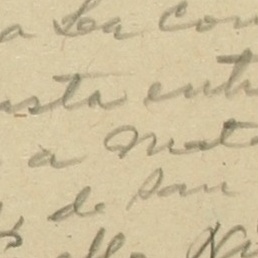 a La con
usta entr
a Mata
de San
lle Ni